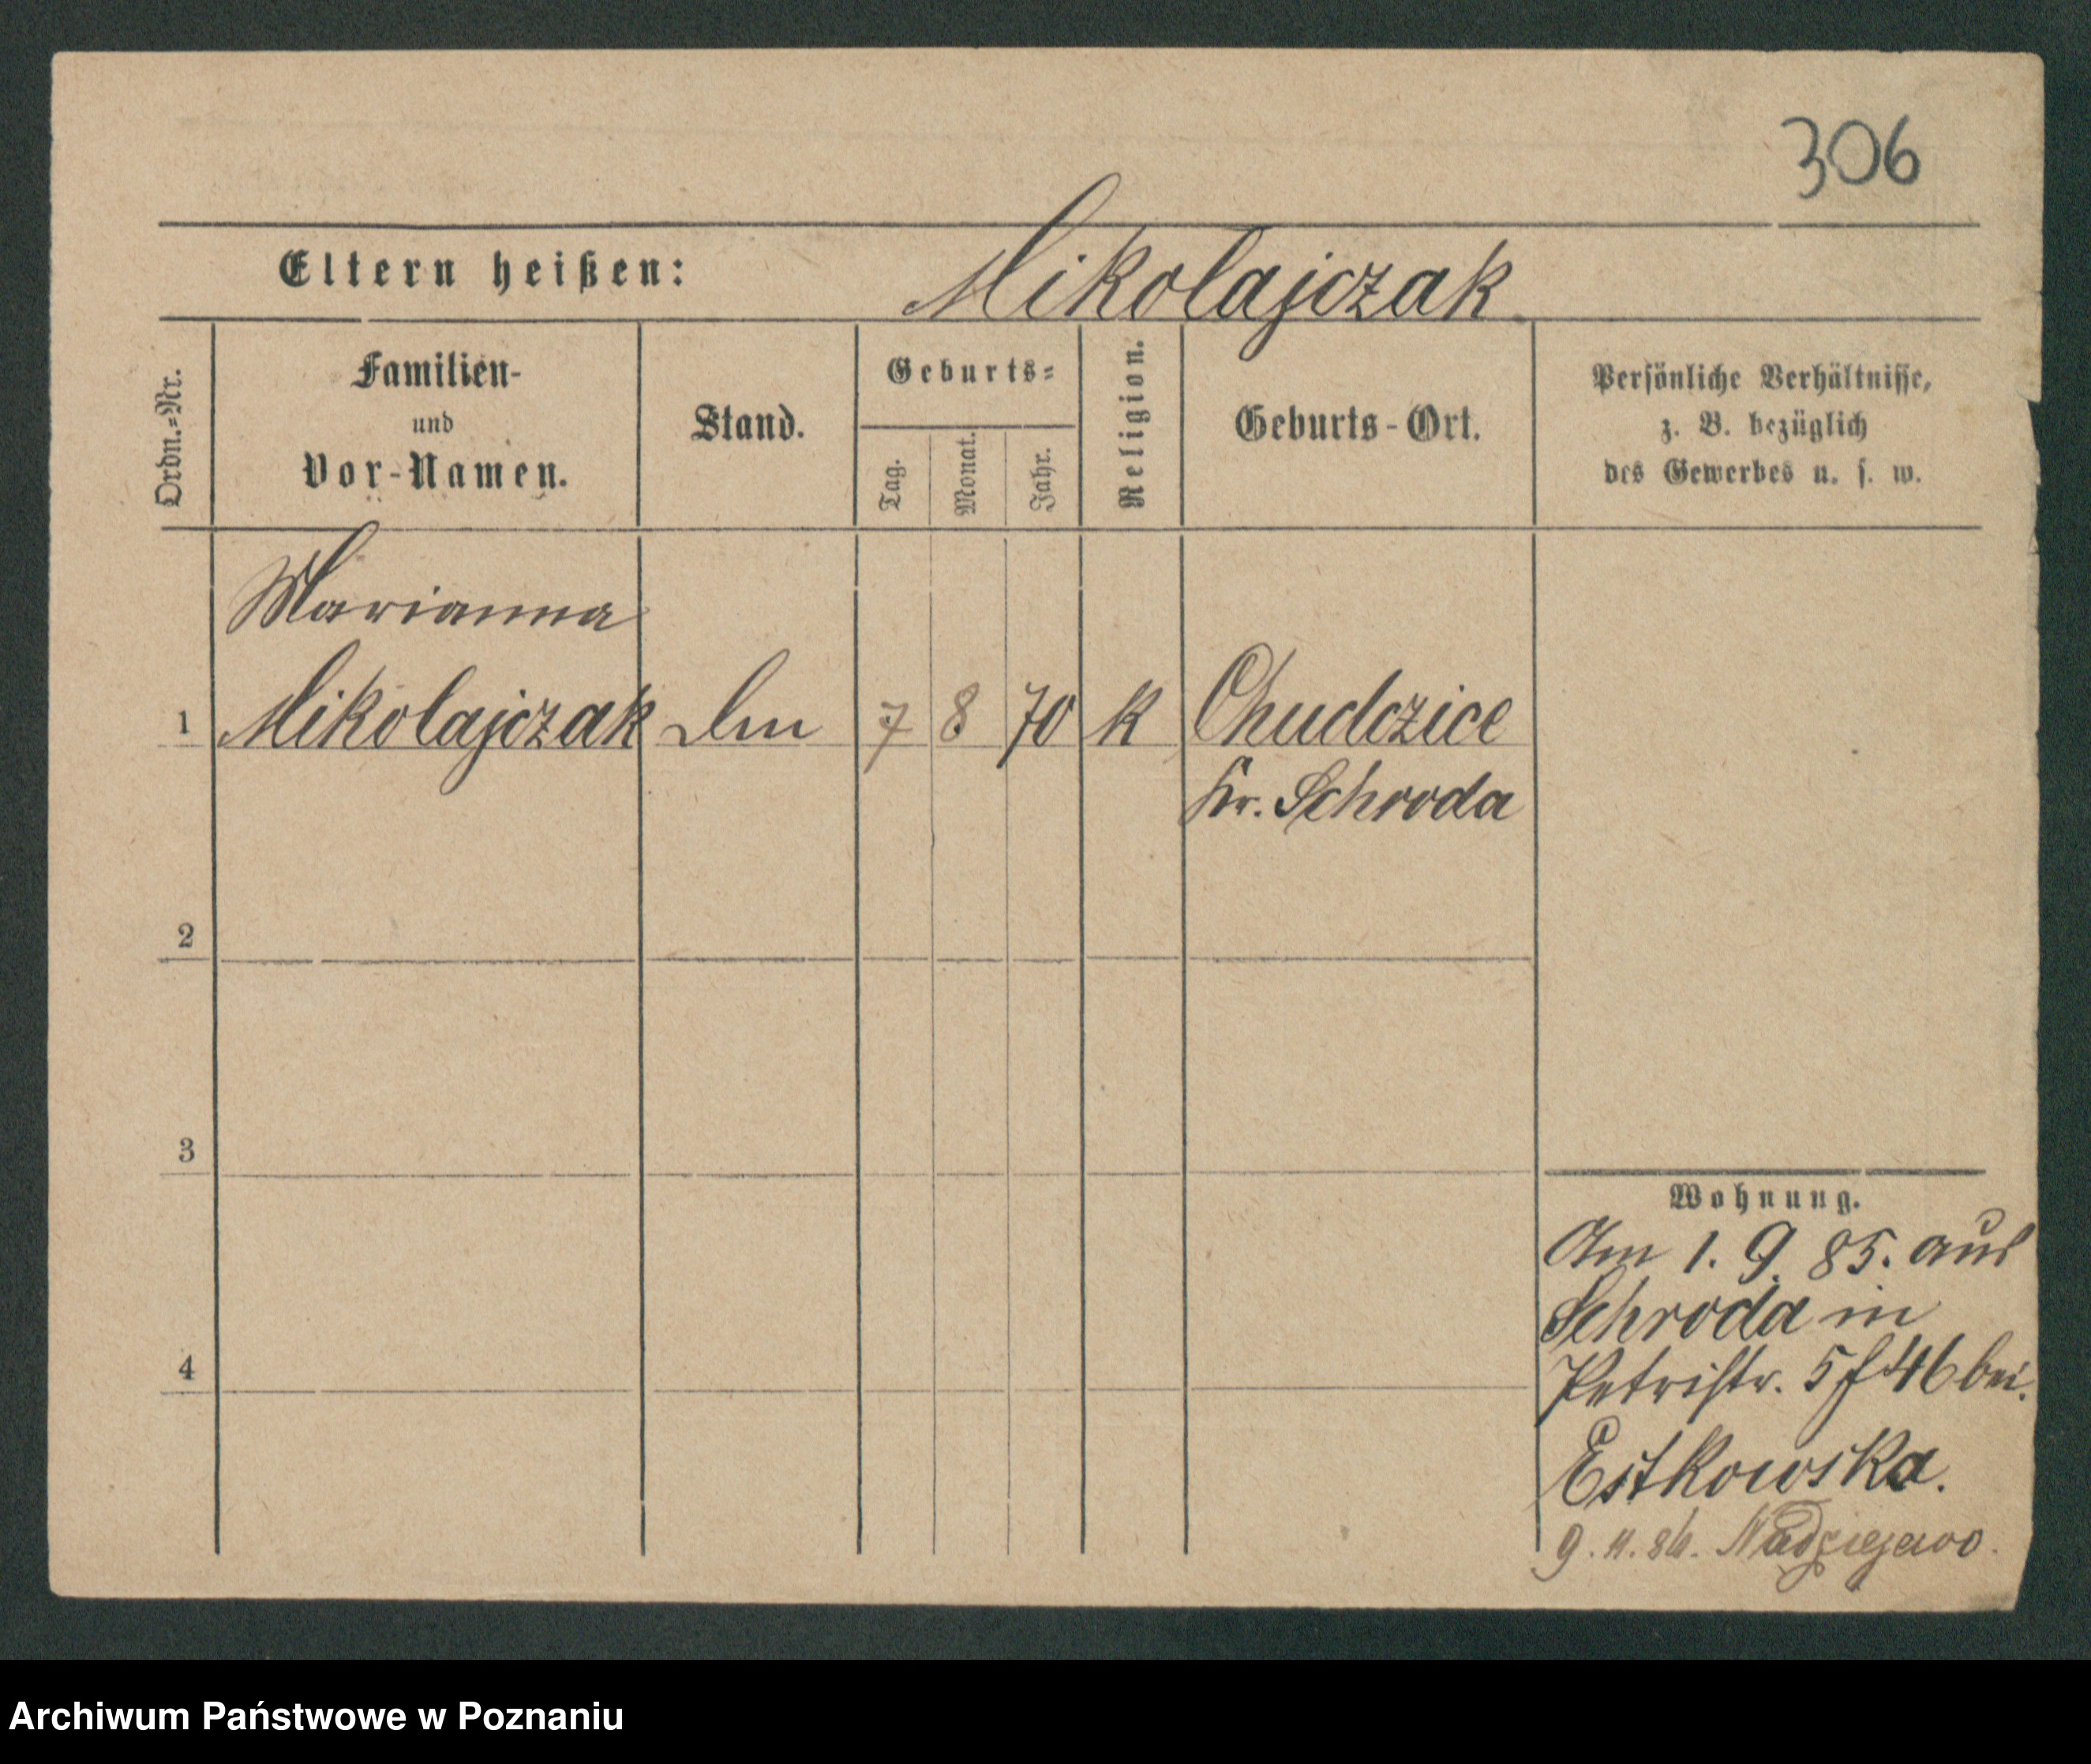 306
Eltern heißen: Mikolajczak
Ordn.-Nr.
Familien-
und
Vor-Namen.
Stand.
Geburts-
Tag.
Monat.
Jahr.
Religion.
Geburts-Ort.
Persönliche Verhältnisse,
z. B. bezüglich
des Gewerbes u. s. w.
Marianna
1 Mikolajczak 7 8 70 k Chudczice
Kr. Schroda
2
3
4
Wohnung.
Am 1. 9. 85. aus
Schroda in
Petristr. 5 f 46 bei.
Estkowska.
9. 11. 86. Nadziejewo.
Archiwum Państwowe w Poznaniu